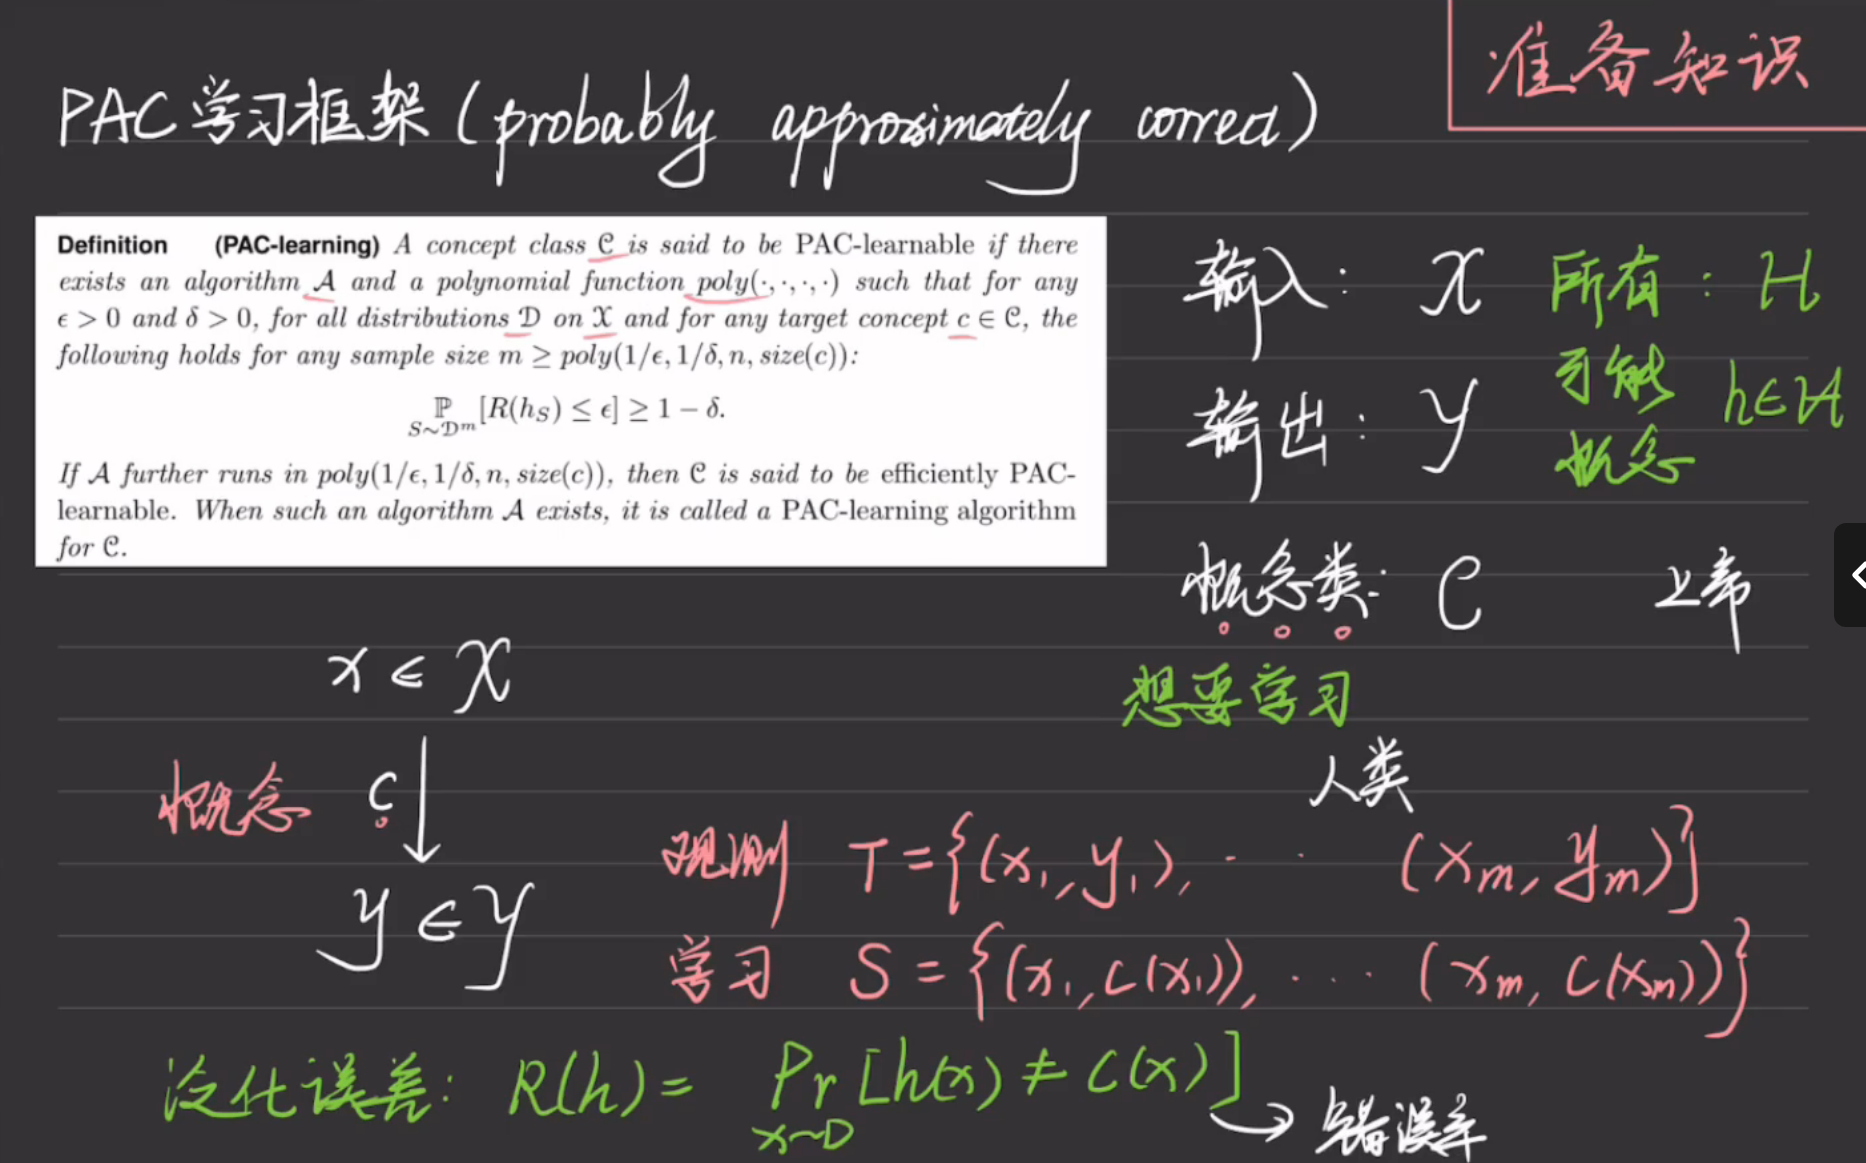 准备知识
PAC学习框架(probably approximately correct)
Definition (PAC-learning) A concept class 𝒞 is said to be PAC-learnable if there
exists an algorithm 𝒜 and a polynomial function poly(·,·,·,·) such that for any
ϵ > 0 and δ > 0, for all distributions 𝒟 on 𝒳 and for any target concept c ∈ 𝒞, the
following holds for any sample size m ≥ poly(1/ϵ, 1/δ, n, size(c)):
ℙ [R(h_S) ≤ ϵ] ≥ 1 − δ.
S∼𝒟^m
If 𝒜 further runs in poly(1/ϵ, 1/δ, n, size(c)), then 𝒞 is said to be efficiently PAC-
learnable. When such an algorithm 𝒜 exists, it is called a PAC-learning algorithm
for 𝒞.
输入: 𝒳
输出: 𝒴
所有: H
可能 h∈H
概念
概念类: 𝒞 上帝
想要学习
人类
x ∈ 𝒳
概念 c
y ∈ 𝒴
观测 T={(x₁,y₁), ··· (xₘ,yₘ)}
学习 S={(x₁,c(x₁)), ··· (xₘ,c(xₘ))}
泛化误差: R(h)= Pr [h(x)≠c(x)]
x~D
错误率